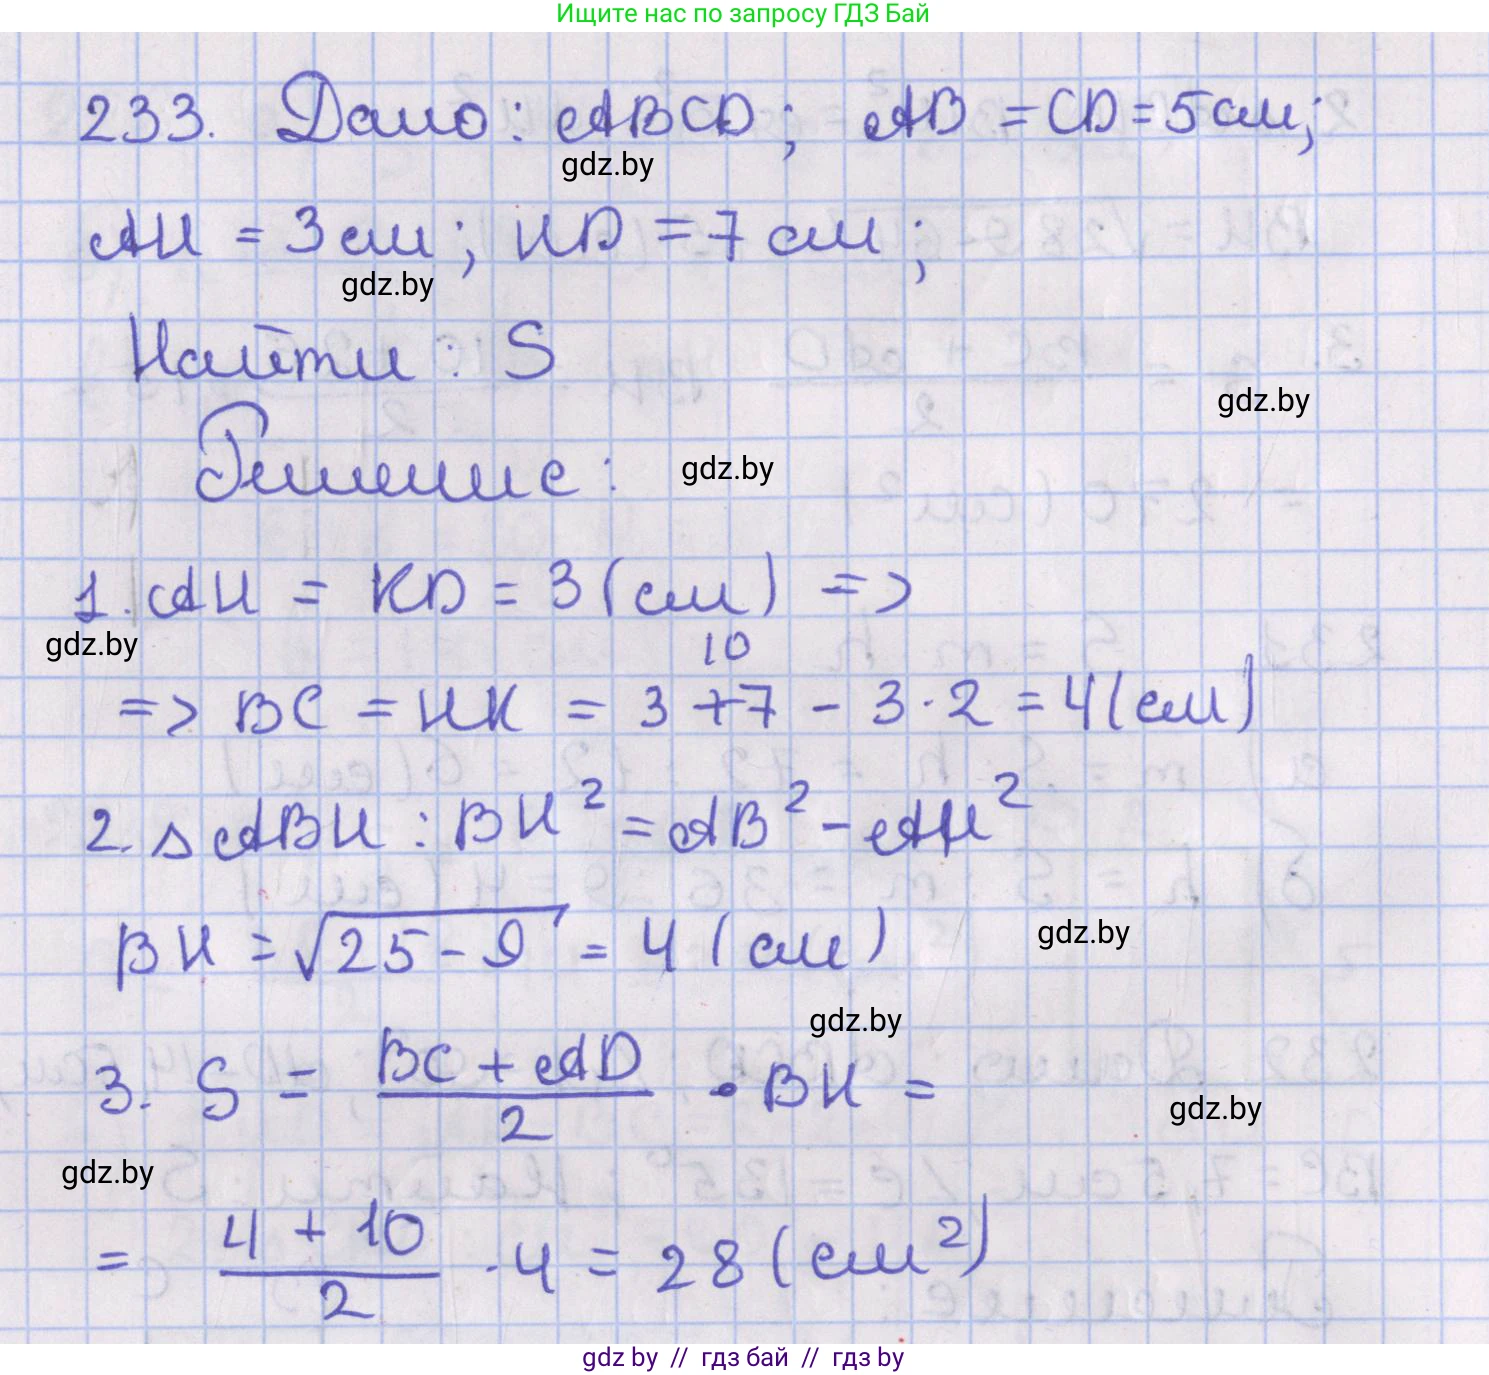 Ищите нас по запросу ГДЗ Бай
233. Дано: ABCD; AB = CD = 5 см;
gdz.by
AH = 3 см; HD = 7 см;
gdz.by
Найти: S
gdz.by
Решение:
gdz.by
1. AH = KD = 3 (см) =>
gdz.by
10
=> BC = HK = 3 + 7 - 3 · 2 = 4 (см)
2. △ ABH : BH² = AB² - AH²
BH = √25 - 9 = 4 (см)
gdz.by
gdz.by
3. S = (BC + AD)/2 · BH =
gdz.by
gdz.by
= (4 + 10)/2 · 4 = 28 (см²)
gdz by // гдз бай // гдз by